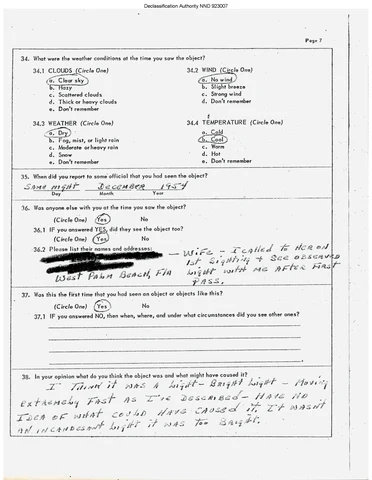 Declassification Authority NND 923007
Page 7
34. What were the weather conditions at the time you saw the object?
34.1 CLOUDS (Circle One) 34.2 WIND (Circle One)
a. Clear sky a. No wind
b. Hazy b. Slight breeze
c. Scattered clouds c. Strong wind
d. Thick or heavy clouds d. Don't remember
e. Don't remember
34.3 WEATHER (Circle One) 34.4 TEMPERATURE (Circle One)
a. Dry a. Cold
b. Fog, mist, or light rain b. Cool
c. Moderate or heavy rain c. Warm
d. Snow d. Hot
e. Don't remember e. Don't remember
35. When did you report to some official that you had seen the object?
SAME NIGHT DECEMBER 1954
Day Month Year
36. Was anyone else with you at the time you saw the object?
(Circle One) Yes No
36.1 IF you answered YES, did they see the object too?
(Circle One) Yes No
36.2 Please list their names and addresses:
— WIFE — I CALLED TO HER ON
1ST SIGHTING & SHE OBSERVED
LIGHT WITH ME AFTER FIRST
PASS.
WEST PALM BEACH, FLA
37. Was this the first time that you had seen an object or objects like this?
(Circle One) Yes No
37.1 IF you answered NO, then when, where, and under what circumstances did you see other ones?
38. In your opinion what do you think the object was and what might have caused it?
I THINK IT WAS A LIGHT — BRIGHT LIGHT — MOVING
EXTREMELY FAST AS I'VE DESCRIBED — HAVE NO
IDEA OF WHAT COULD HAVE CAUSED IT. IT WASN'T
AN INCANDESANT LIGHT IT WAS TOO BRIGHT.